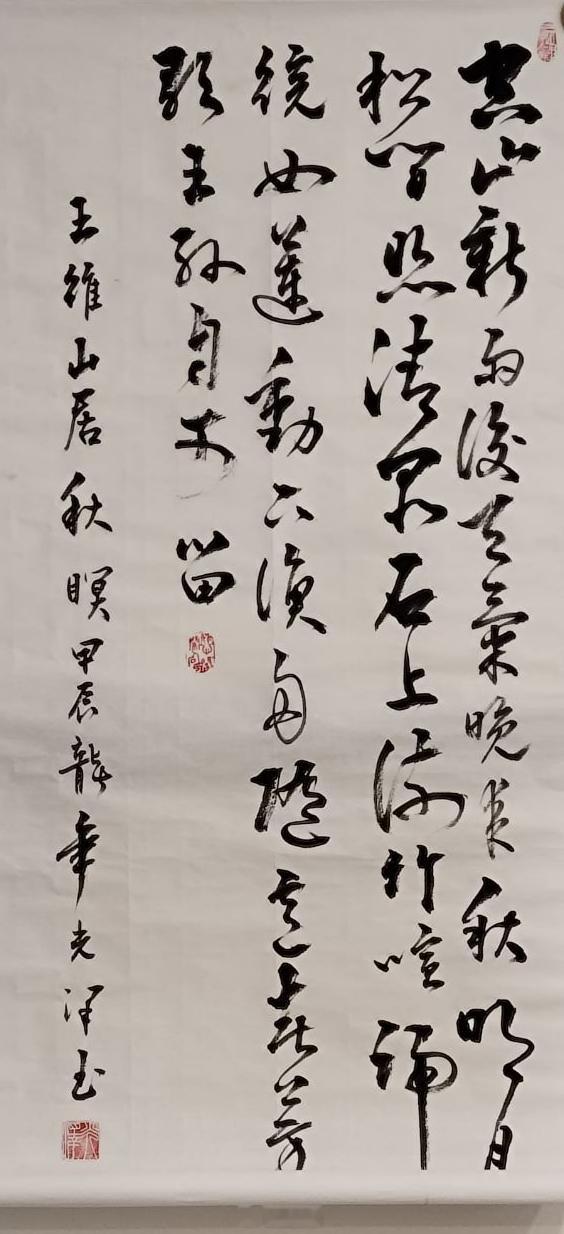 空山新雨後天氣晚來秋明月
松間照清泉石上流竹喧歸
浣女蓮動下漁舟隨意春芳
歇王孫自可留
王維山居秋瞑甲辰龍年光